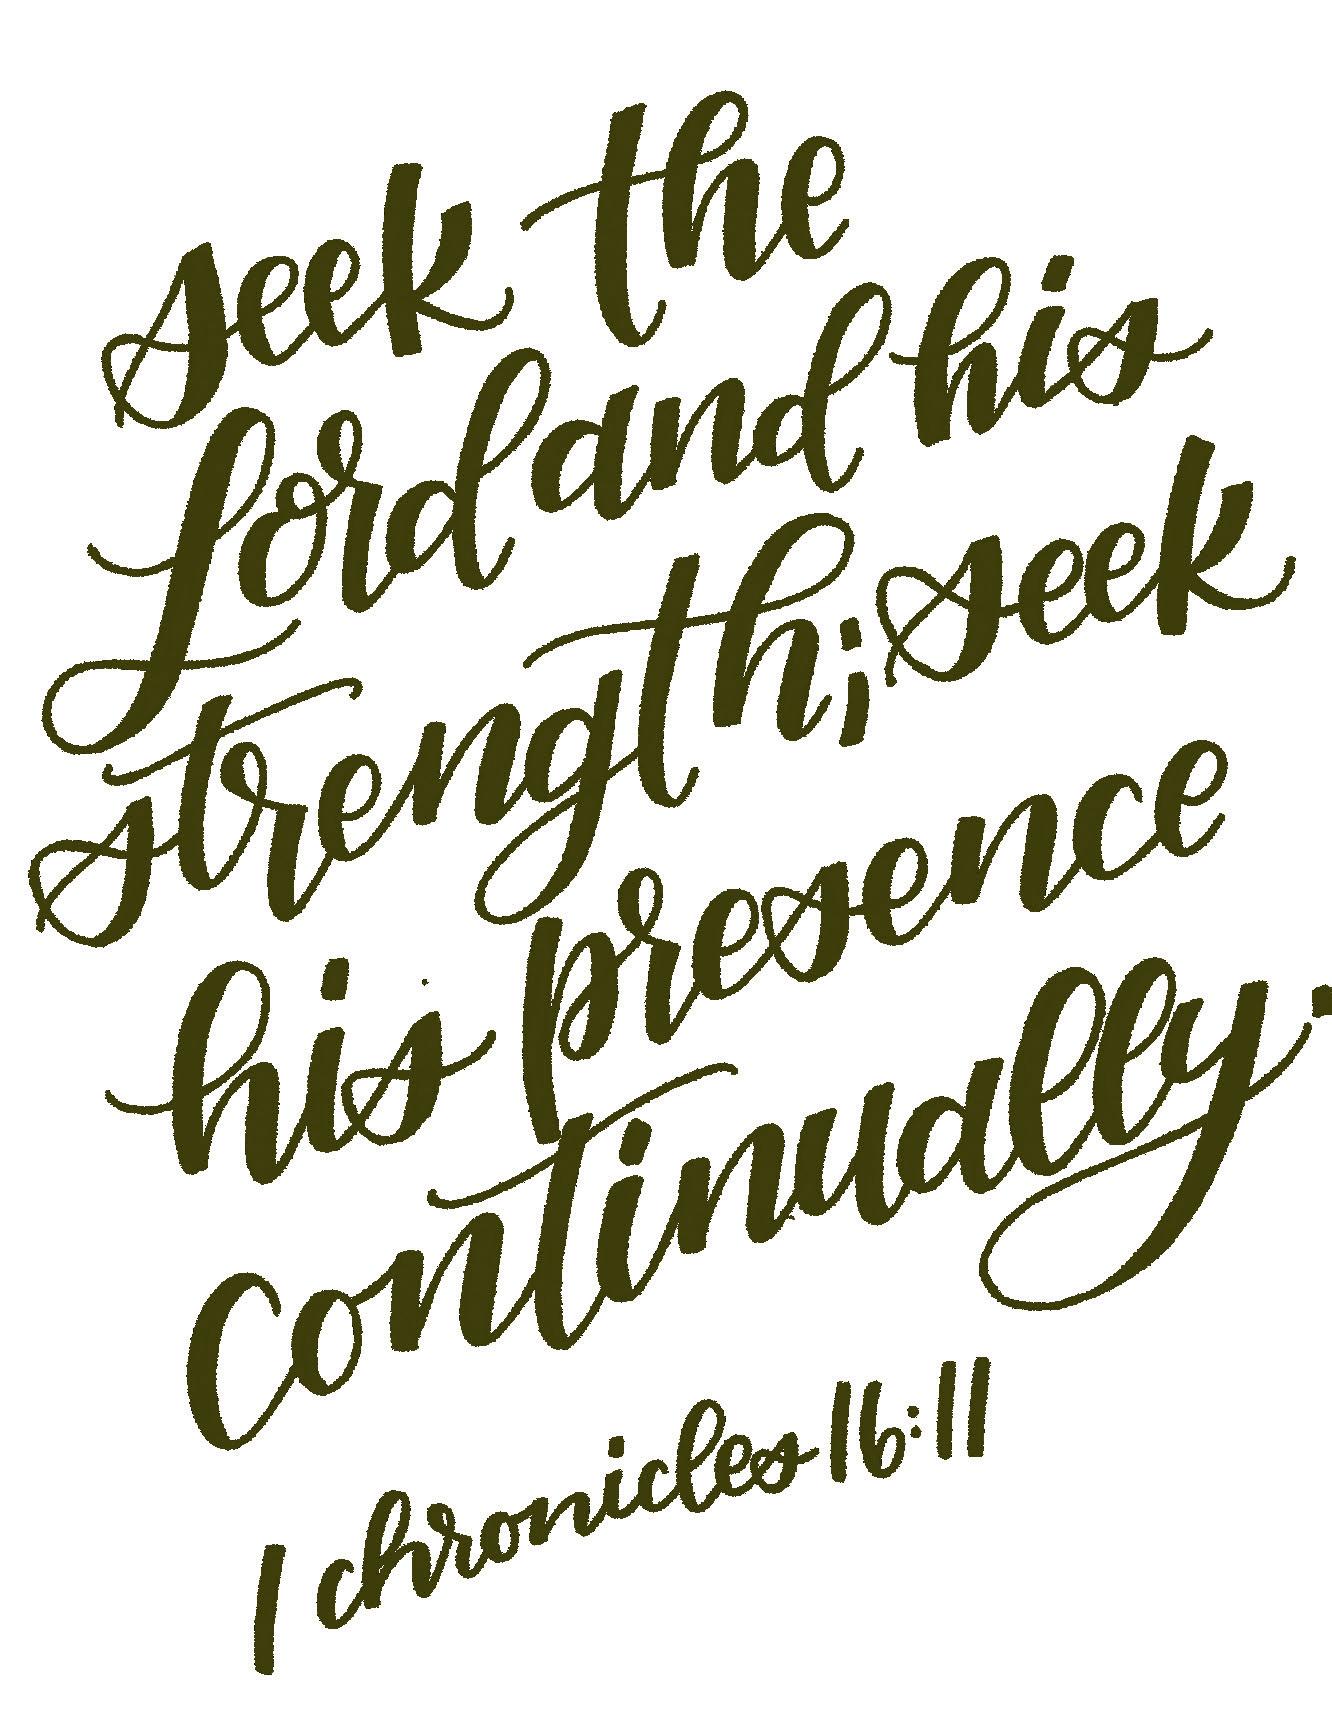 seek the
Lord and his
strength; seek
his presence
continually.
1 chronicles 16:11